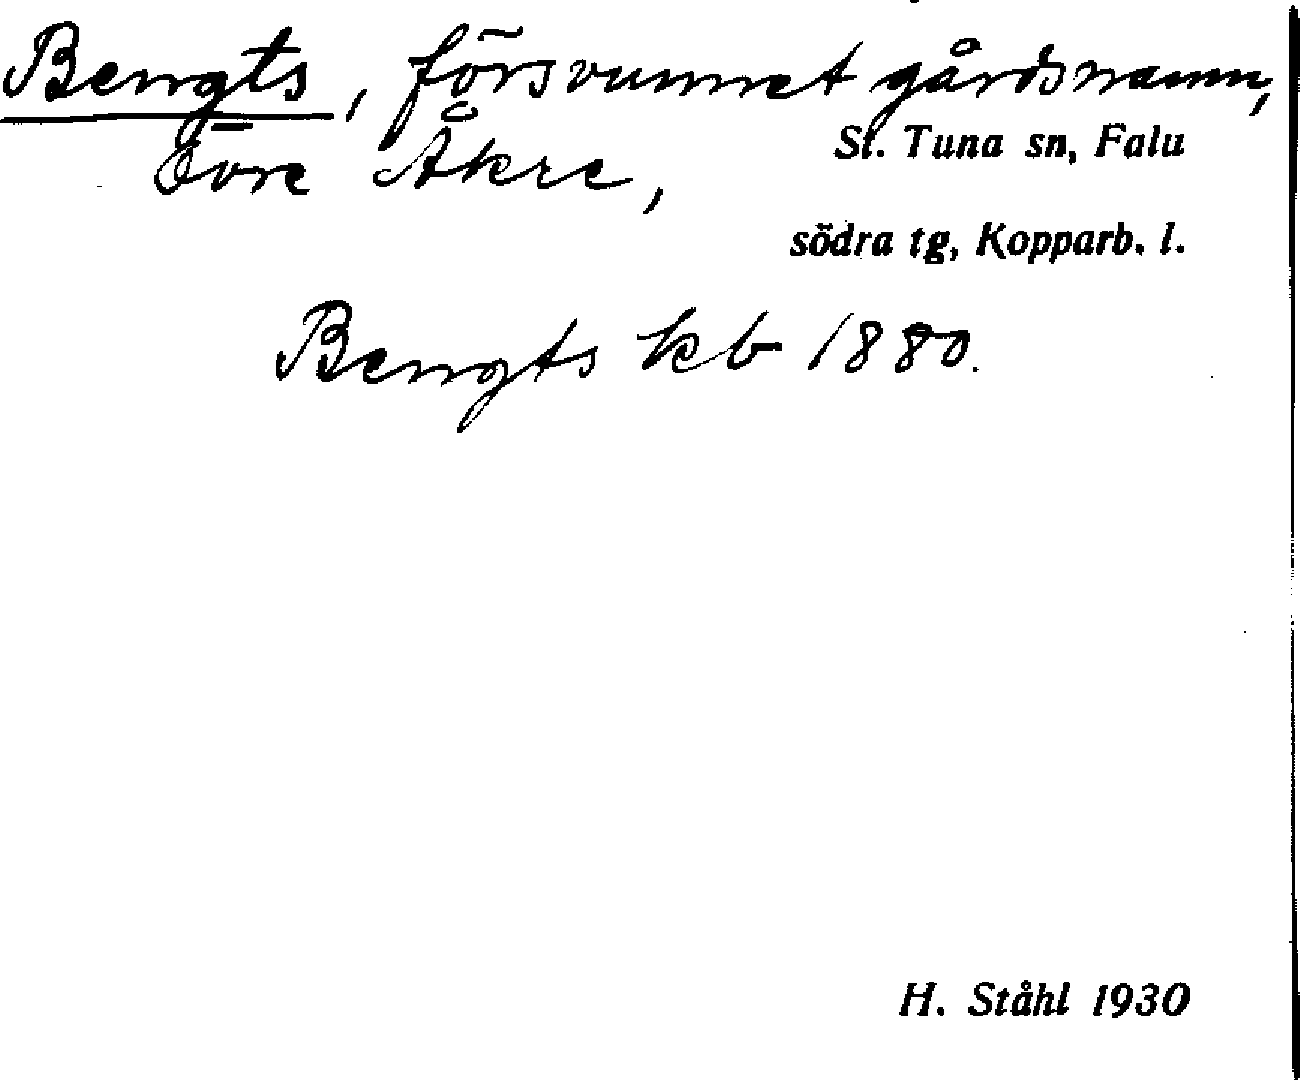 Bengts, försvunnet gårdsnamn,
Övre Åkre, St. Tuna sn, Falu
södra tg, Kopparb. l.
Bengts kb 1880.
H. Ståhl 1930